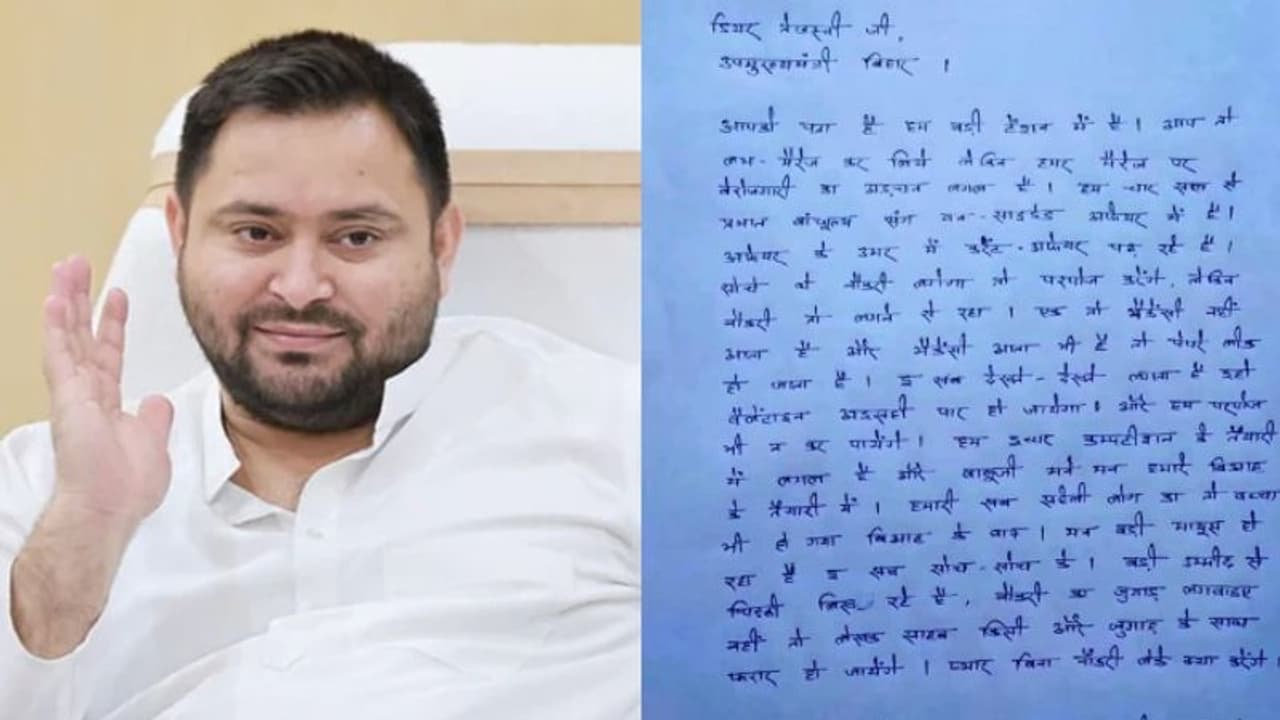 डियर तेजस्वी जी,
उपमुख्यमंत्री बिहार ।
आपको पता है हम बड़ी टेंशन में है । आप तो
लभ-मैरेज कर लिये लेकिन हमर मैरेज पर
बेरोजगारी का अड़चन लगल है । हम चार साल से
प्रभात बांधुल्य संग वन-साइडेड अफेयर में है ।
अफेयर के उमर में करेंट-अफेयर पढ़ रहे है ।
सोचे थे नौकरी लगेगा तो परपोज करेंगे, लेकिन
नौकरी तो लगने से रहा । एक तो भैकेंसी नहीं
आता है और भैकेंसी आता भी है तो पेपरे लीक
हो जाता है । इ सब देखते-देखते लगता है इहो
वैलेंटाइन अइसही पार हो जायेगा । और हम परपोज
भी न कर पायेंगे । हम इध्यर कम्पटीशन के तैयारी
में लगल है और बाबूजी मने मन हमारे बिआह
के तैयारी में । हमारी सब सहेली लोग का तो बच्चा
भी हो गया बिआह के बाद । मन बड़ी मायूस हो
रहा है इ सब सोच-सोच के । बड़ी उम्मीद से
चिट्ठी लिख रहे है, नौकरी का जुगाड़ लगवाइए
नहीं तो लेखक साहब किसी और जुगाड़ के साथ
फरार हो जायेंगे । प्यार बिना नौकरी लेके क्या करेंगे ।